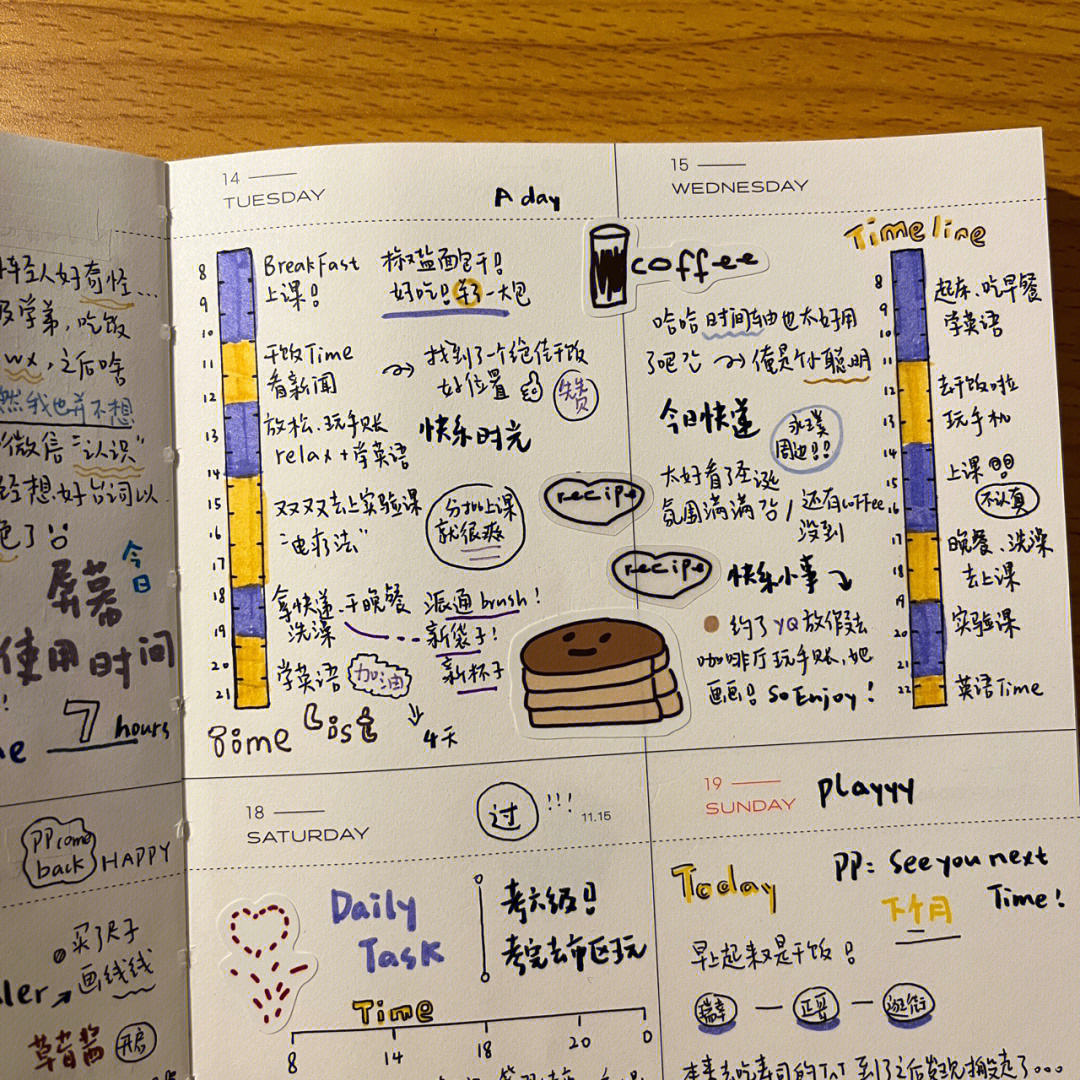 年轻人好奇怪...
学弟，吃饭
wx，之后啥
然我也并不想
微信“认识”
经想好台词以
绝了
今日
屏幕
使用时间
7 hours
PP come
back
HAPPY
买了尺子
画线线
ler
草莓酱
开启
14
TUESDAY
A day
8
9
10
11
12
13
14
15
16
17
18
19
20
21
BreakFast
上课!
椒盐面包干!
好吃! 一大包
干饭Time
看新闻
找到了一个绝佳干饭
好位置
赞
放松、玩手账
relax+学英语
快乐时光
双双去上实验课
“电疗法”
分批上课
就很爽
拿快递、干晚餐
洗澡
派通brush!
新袋子!
新杯子
学英语
加油
4天
Time List
recipe
recipe
15
WEDNESDAY
coffee
Timeline
哈哈时间轴也太好用
了吧 俺是个小聪明
今日快递
永璞
周边!!
太好看了圣诞
氛围满满 / 还有coffee
没到
快乐小事
约了YQ放假去
咖啡厅玩手账，她
画画! So Enjoy!
8
9
10
11
12
13
14
15
16
17
18
19
20
21
22
起床、吃早餐
学英语
去干饭啦
玩手机
上课
不认真
晚餐、洗澡
去上课
实验课
英语Time
18
SATURDAY
过!!!
11.15
Daily
Task
考六级!!
考完去市区玩
Time
8
14
18
20
0
19
SUNDAY
playyy
Today
PP: See you next
Time!
下个月
早上起来又是干饭!
瑞幸 — 正窑 — 逛街
本来去吃寿司的TnT 到了之后发现搬走了...